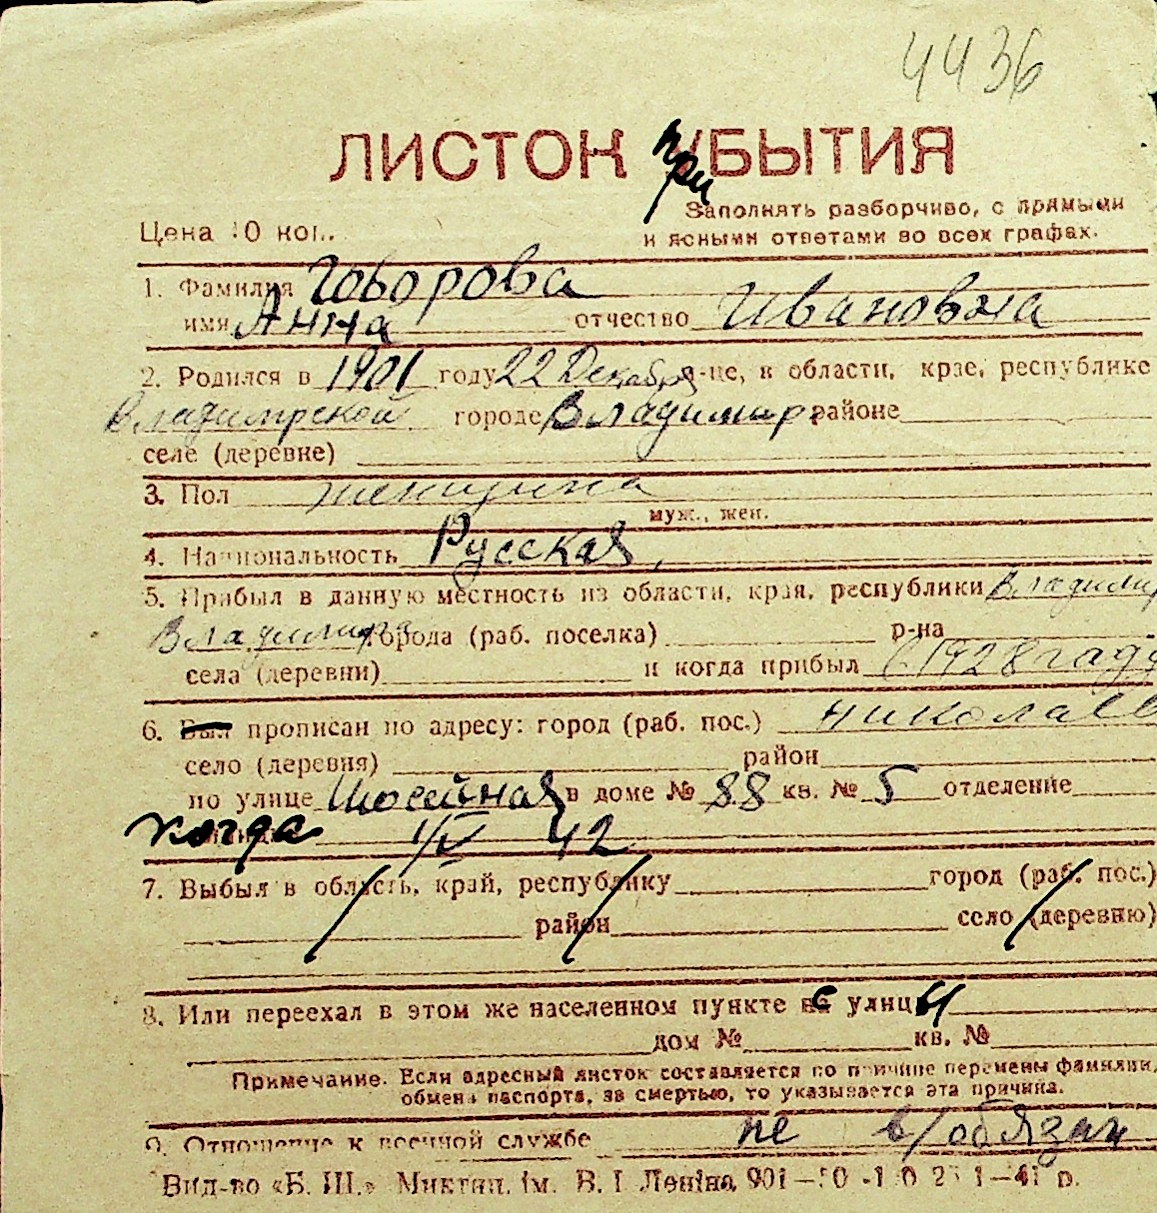 4436
ЛИСТОК при УБЫТИЯ
Заполнять разборчиво, с прямыми
Цена 10 коп. и ясными ответами во всех графах.
1. Фамилия Говорова
имя Анна отчество Ивановна
2. Родился в 1901 году 22 Декабря р-не, в области, крае, республике
Владимирской городе Владимир районе
селе (деревне)
3. Пол женщина
муж., жен.
4. Национальность Русская,
5. Прибыл в данную местность из области, края, республики Владимир
Владимира города (раб. поселка) р-на
села (деревни) и когда прибыл с 1928 году
6. Был прописан по адресу: город (раб. пос.) Николаев
село (деревня) район
по улице Шосейная в доме № 88 кв. № 5 отделение
когда 1/IV 42
7. Выбыл в область, край, республику город (раб. пос.)
район село (деревню)
8. Или переехал в этом же населенном пункте с улицы
дом № кв. №
Примечание. Если адресный листок составляется по причине перемены фамилии,
обмена паспорта, за смертью, то указывается эта причина.
9. Отношение к военной службе не в/обязан
Вид-во «Б. Ш.» Миктип. ім. В. І Леніна 901